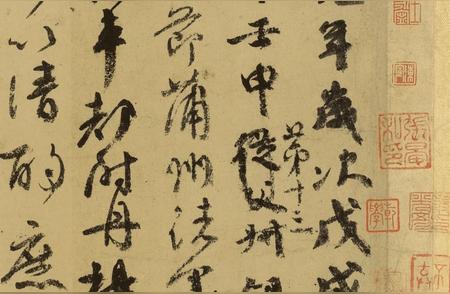 年歲次戊戌
壬申第十三從父叔銀
節蒲州諸軍
車都尉丹楊
以清酌庶
張晏私印